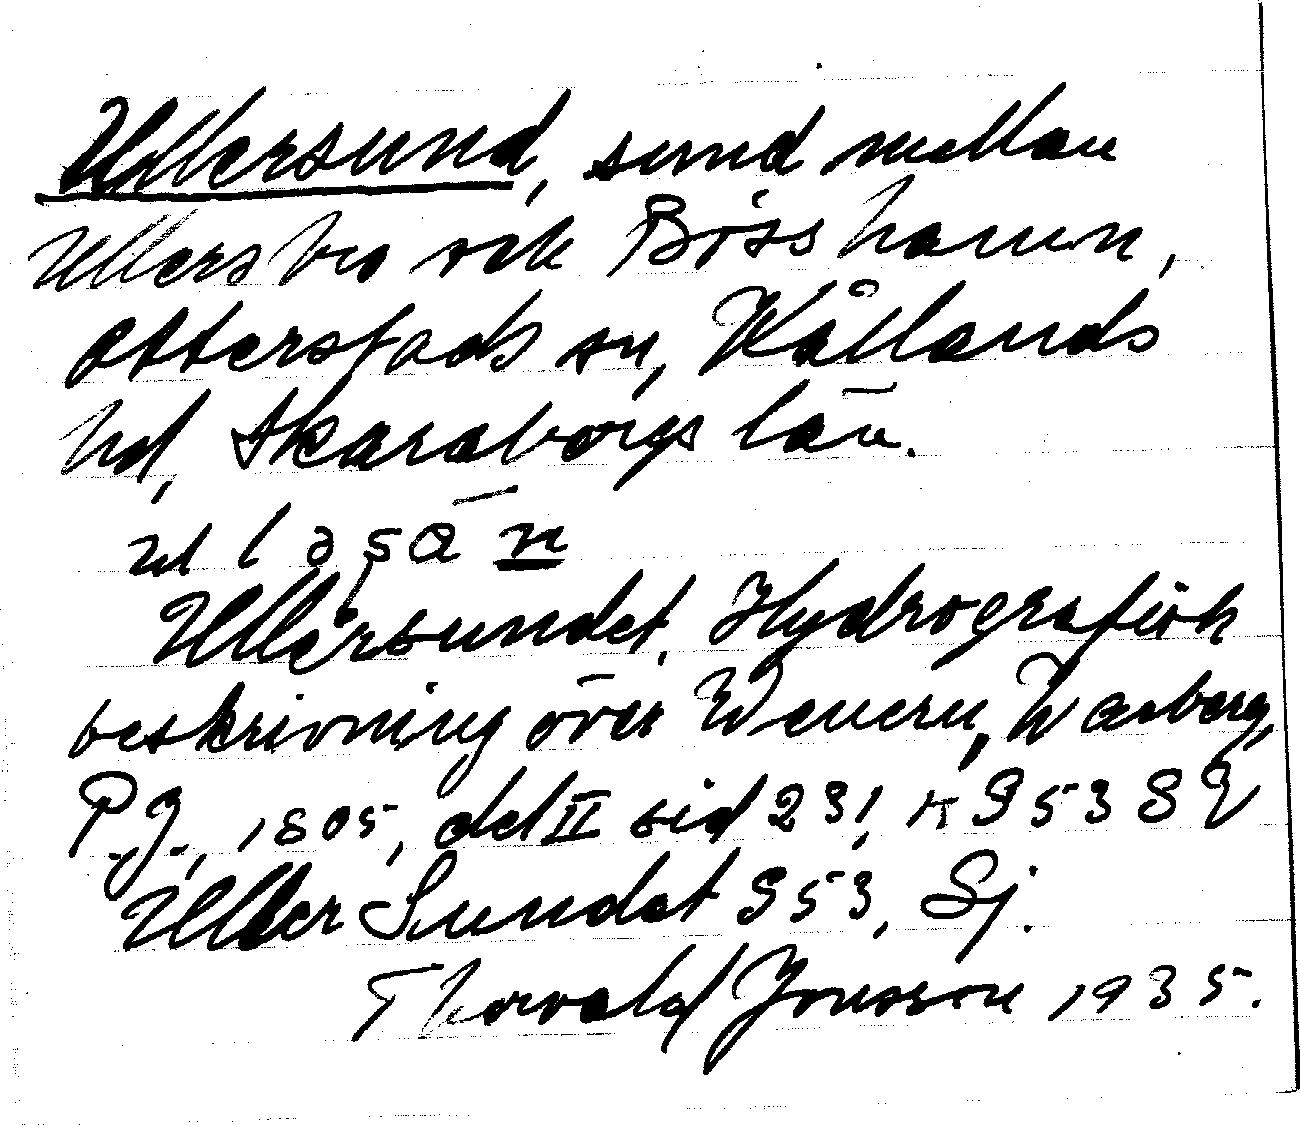 Ullersund, sund mellan
Ullersbro och Böss hamn,
Otterstads sn, Kållands
hd, Skaraborgs län.
Ullersundet, Hydrografisk
beskrivning över Wenern, Warberg,
P.J., 1805, del II sid 231,
Uller Sundet 953, Sj.
Thorvald Jonsson 1935.